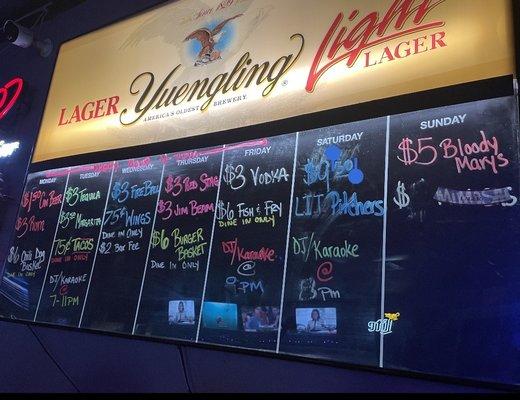 SINCE 1829
LAGER Yuengling Light LAGER
AMERICA'S OLDEST BREWERY
MONDAY
$3 Rum
$6 Chili Dog
Basket
DINE IN ONLY
TUESDAY
$3 Tequila
Margarita
75¢ Tacos
DINE IN ONLY
DJ/Karaoke
@
7-11pm
WEDNESDAY
75¢ Wings
DINE IN ONLY
$2 Box Fee
THURSDAY
$3 Red Stag
$3 Jim Beam
$6 Burger
Basket
DINE IN ONLY
FRIDAY
$3 Vodka
$6 Fish & Fry
DINE IN ONLY
DJ/Karaoke
@
pm
SATURDAY
LIT Pitchers
DJ/Karaoke
@
pm
SUNDAY
$5 Bloody
Marys
$